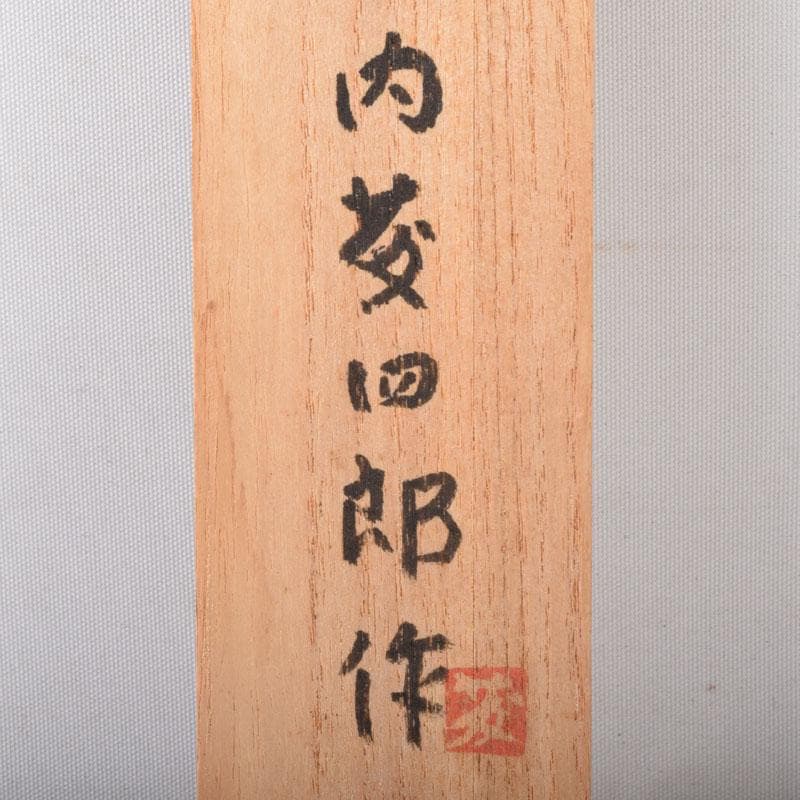 内
四郎作